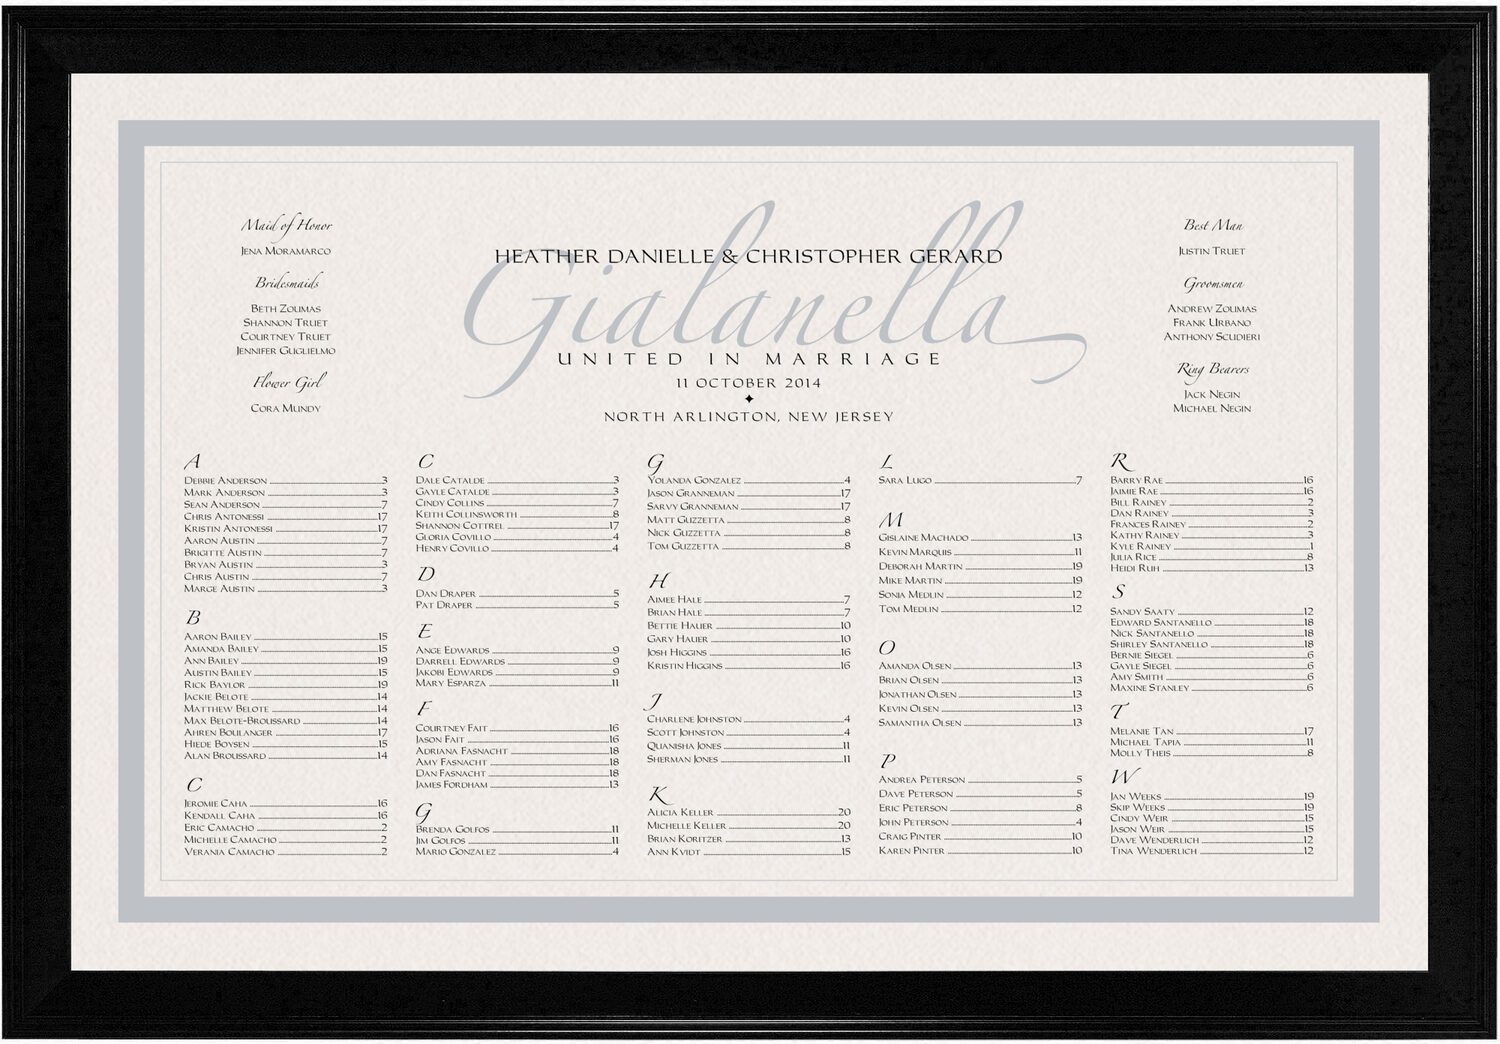 Maid of Honor
Jena Moramarco
Bridesmaids
Beth Zoumas
Shannon Truet
Courtney Truet
Jennifer Guglielmo
Flower Girl
Cora Mundy
HEATHER DANIELLE & CHRISTOPHER GERARD
Gialanella
UNITED IN MARRIAGE
11 OCTOBER 2014
NORTH ARLINGTON, NEW JERSEY
Best Man
Justin Truet
Groomsmen
Andrew Zoumas
Frank Urbano
Anthony Scudieri
Ring Bearers
Jack Negin
Michael Negin
A
Debbie Anderson 3
Mark Anderson 3
Sean Anderson 7
Chris Antonessi 17
Kristin Antonessi 17
Aaron Austin 7
Brigitte Austin 7
Bryan Austin 3
Chris Austin 7
Marge Austin 3
B
Aaron Bailey 15
Amanda Bailey 15
Ann Bailey 19
Austin Bailey 15
Rick Baylor 19
Jackie Belote 14
Matthew Belote 14
Max Belote-Broussard 14
Ahren Boulanger 17
Hiede Boysen 15
Alan Broussard 14
C
Jeromie Caha 16
Kendall Caha 16
Eric Camacho 2
Michelle Camacho 2
Verania Camacho 2
C
Dale Catalde 3
Gayle Catalde 3
Cindy Collins 7
Keith Collinsworth 8
Shannon Cottrel 17
Gloria Covillo 4
Henry Covillo 4
D
Dan Draper 5
Pat Draper 5
E
Ange Edwards 9
Darrell Edwards 9
Jakobi Edwards 9
Mary Esparza 11
F
Courtney Fait 16
Jason Fait 16
Adriana Fasnacht 18
Amy Fasnacht 18
Dan Fasnacht 18
James Fordham 13
G
Brenda Golfos 11
Jim Golfos 11
Mario Gonzalez 4
G
Yolanda Gonzalez 4
Jason Granneman 17
Sarvy Granneman 17
Matt Guzzetta 8
Nick Guzzetta 8
Tom Guzzetta 8
H
Aimee Hale 7
Brian Hale 7
Bettie Hauer 10
Gary Hauer 10
Josh Higgins 16
Kristin Higgins 16
J
Charlene Johnston 4
Scott Johnston 4
Quanisha Jones 11
Sherman Jones 11
K
Alicia Keller 20
Michelle Keller 20
Brian Koritzer 13
Ann Kvidt 15
L
Sara Lugo 7
M
Gislaine Machado 13
Kevin Marquis 11
Deborah Martin 19
Mike Martin 19
Sonja Medlin 12
Tom Medlin 12
O
Amanda Olsen 13
Brian Olsen 13
Jonathan Olsen 13
Kevin Olsen 13
Samantha Olsen 13
P
Andrea Peterson 5
Dave Peterson 5
Eric Peterson 8
John Peterson 4
Craig Pinter 10
Karen Pinter 10
R
Barry Rae 16
Jaimie Rae 16
Bill Rainey 2
Dan Rainey 3
Frances Rainey 2
Kathy Rainey 3
Kyle Rainey 1
Julia Rice 8
Heidi Ruh 13
S
Sandy Saaty 12
Edward Santanello 18
Nick Santanello 18
Shirley Santanello 18
Bernie Siegel 6
Gayle Siegel 6
Amy Smith 6
Maxine Stanley 6
T
Melanie Tan 17
Michael Tapia 11
Molly Theis 8
W
Jan Weeks 19
Skip Weeks 19
Cindy Weir 15
Jason Weir 15
Dave Wenderlich 12
Tina Wenderlich 12